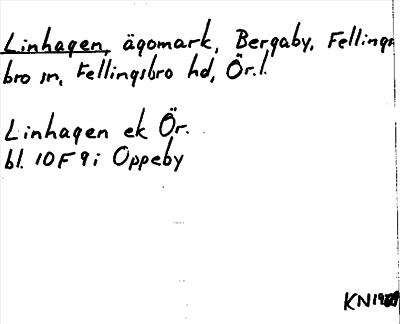 Linhagen, ägomark, Bergaby, Fellings
bro sn, Fellingsbro hd, Ör.l.
Linhagen ek Ör.
bl. 10F 9i Oppeby